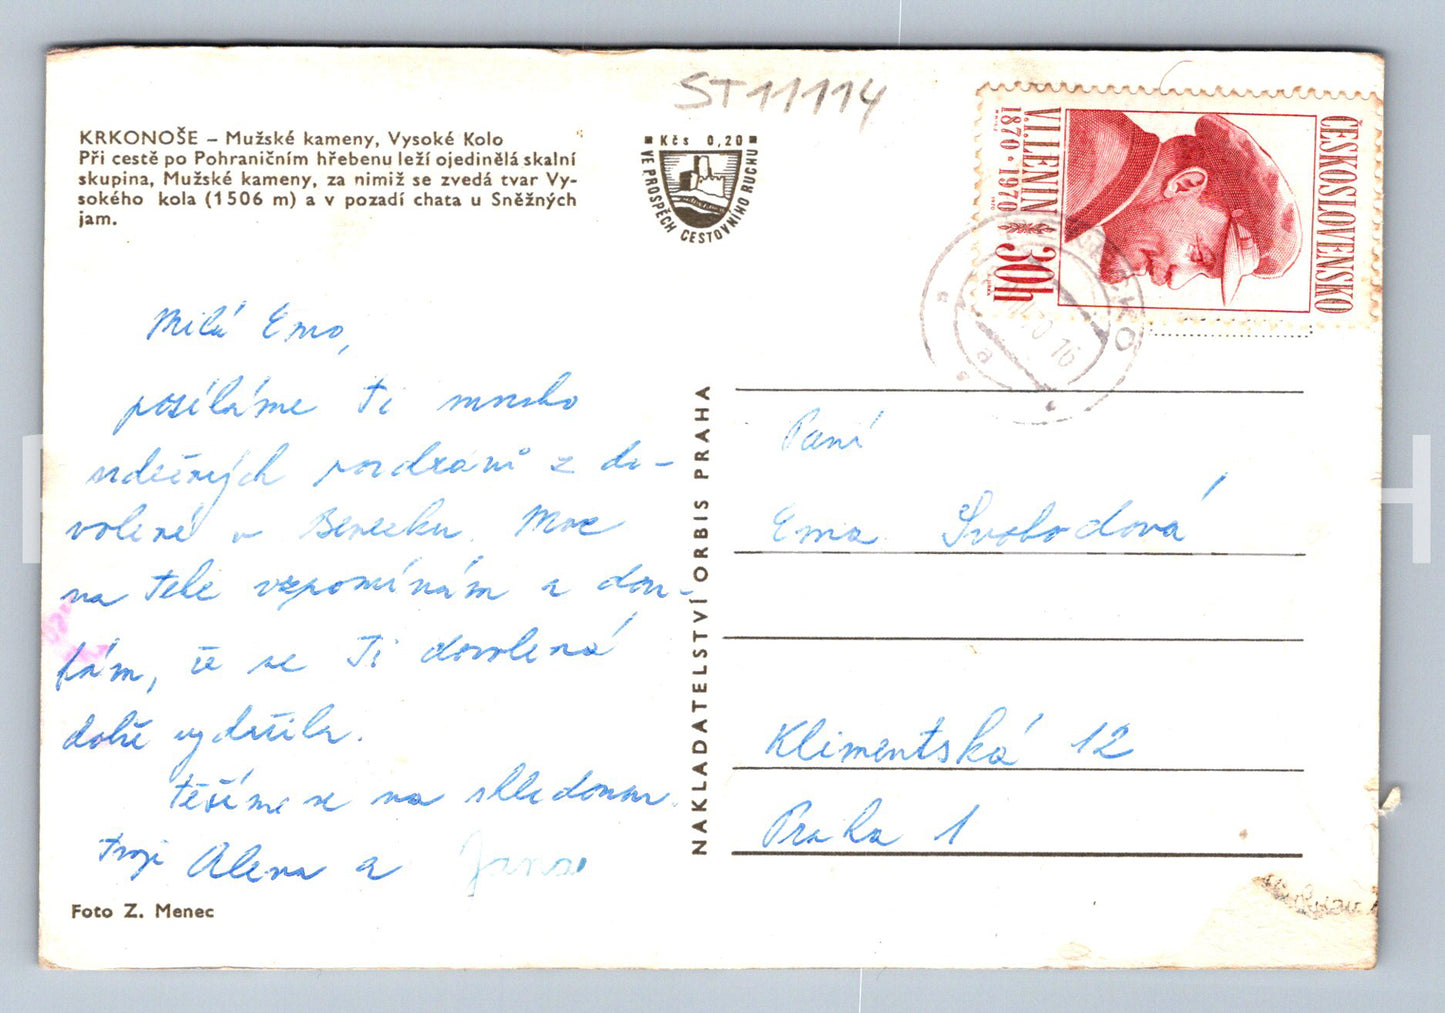 ST11114
KRKONOŠE – Mužské kameny, Vysoké Kolo
Při cestě po Pohraničním hřebenu leží ojedinělá skalní
skupina, Mužské kameny, za nimiž se zvedá tvar Vy-
sokého kola (1506 m) a v pozadí chata u Sněžných
jam.
Kčs 0,20
VE PROSPĚCH CESTOVNÍHO RUCHU
ČESKOSLOVENSKO
V.I.LENIN
1870 · 1970
30h
Milá Emo,
posíláme Ti mnoho
srdečných pozdravů z do-
volené v Benecku. Moc
na Tebe vzpomínám a dou-
fám, že se Ti dovolená
dobře vydařila.
Těšíme se na shledanou.
Tvoje Alena a Jana
Foto Z. Menec
NAKLADATELSTVÍ ORBIS PRAHA
Paní
Ema Svobodová
Klimentská 12
Praha 1